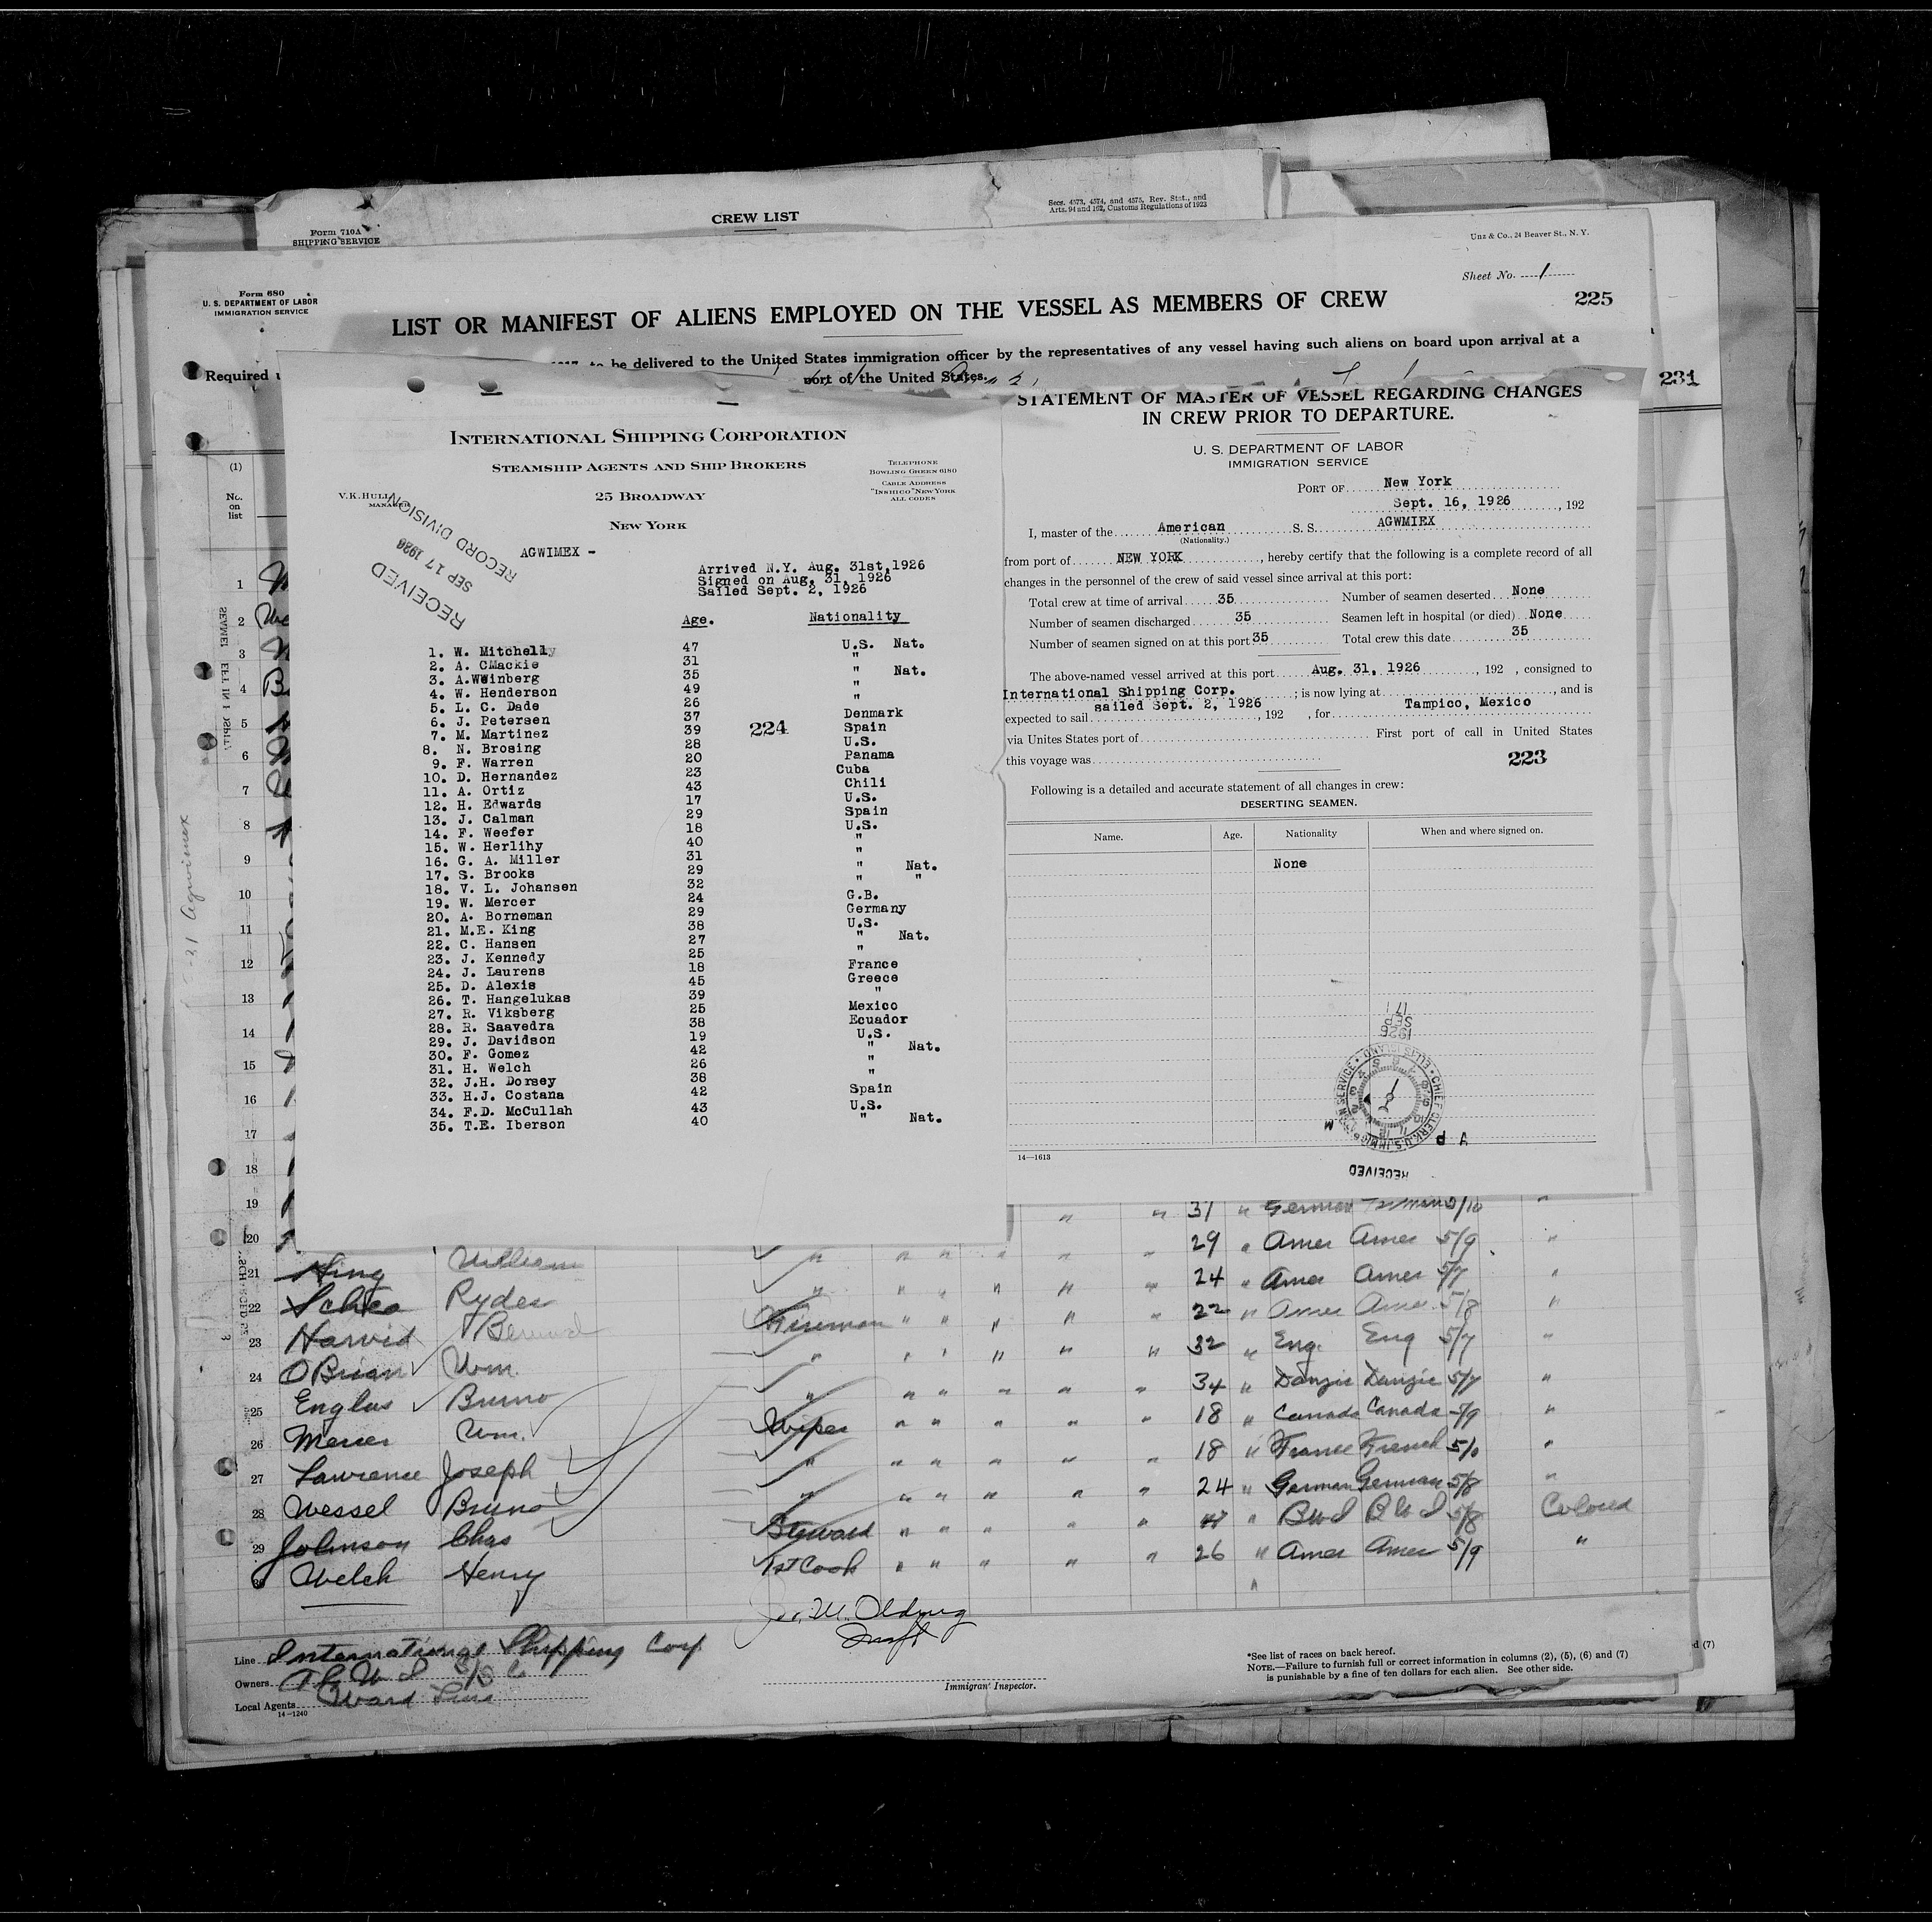 CREW LIST
Form 710A
SHIPPING SERVICE
Secs. 4573, 4574, and 4575, Rev. Stat., and
Arts. 94 and 192, Customs Regulations of 1923
Unz & Co., 24 Beaver St., N. Y.
Sheet No. 1
Form 680
U. S. DEPARTMENT OF LABOR
IMMIGRATION SERVICE
225
LIST OR MANIFEST OF ALIENS EMPLOYED ON THE VESSEL AS MEMBERS OF CREW
to be delivered to the United States immigration officer by the representatives of any vessel having such aliens on board upon arrival at a
Required
port of the United States.
231
INTERNATIONAL SHIPPING CORPORATION
STEAMSHIP AGENTS AND SHIP BROKERS
TELEPHONE
BOWLING GREEN 6180
CABLE ADDRESS
"INSHICO" NEW YORK
ALL CODES
V.K.HULL
MANAGER
25 BROADWAY
NEW YORK
RECORD DIVISION
SEP 17 1926
RECEIVED
AGWIMEX -
Arrived N.Y. Aug. 31st,1926
Signed on Aug. 31, 1926
Sailed Sept. 2, 1926
Age. Nationality
1. W. Mitchell 47 U.S. Nat.
2. A. CMackie 31 "
3. A.Weinberg 35 " Nat.
4. W. Henderson 49 "
5. L. C. Dade 26 "
6. J. Petersen 37 Denmark
7. M. Martinez 39 Spain
224
8. N. Brosing 28 U.S.
9. F. Warren 20 Panama
10. D. Hernandez 23 Cuba
11. A. Ortiz 43 Chili
12. H. Edwards 17 U.S.
13. J. Calman 29 Spain
14. F. Weefer 18 U.S.
15. W. Herlihy 40 "
16. G. A. Miller 31 "
17. S. Brooks 29 " Nat.
18. V. L. Johansen 32 " "
19. W. Mercer 24 G.B.
20. A. Borneman 29 Germany
21. M.E. King 38 U.S.
22. C. Hansen 27 " Nat.
23. J. Kennedy 25 "
24. J. Laurens 18 France
25. D. Alexis 45 Greece
26. T. Hangelukas 39 "
27. R. Viksberg 25 Mexico
28. R. Saavedra 38 Ecuador
29. J. Davidson 19 U.S.
30. F. Gomez 42 " Nat.
31. H. Welch 26 "
32. J.H. Dorsey 38 "
33. H.J. Costana 42 Spain
34. F.D. McCullah 43 U.S.
35. T.E. Iberson 40 " Nat.
STATEMENT OF MASTER OF VESSEL REGARDING CHANGES
IN CREW PRIOR TO DEPARTURE.
U. S. DEPARTMENT OF LABOR
IMMIGRATION SERVICE
PORT OF New York
Sept. 16, 1926, 192
I, master of the American S. S. AGWMIEX
(Nationality.)
from port of NEW YORK, hereby certify that the following is a complete record of all
changes in the personnel of the crew of said vessel since arrival at this port:
Total crew at time of arrival 35 Number of seamen deserted None
Number of seamen discharged 35 Seamen left in hospital (or died) None
Number of seamen signed on at this port 35 Total crew this date 35
The above-named vessel arrived at this port Aug. 31, 1926, 192 , consigned to
International Shipping Corp. ; is now lying at , and is
expected to sail sailed Sept. 2, 1926, 192 , for Tampico, Mexico
via Unites States port of First port of call in United States
this voyage was
223
Following is a detailed and accurate statement of all changes in crew:
DESERTING SEAMEN.
Name. Age. Nationality When and where signed on.
None
SEP 17 1926
CHIEF CLERK, U.S. IMMIGRATION SERVICE • ELLIS ISLAND
RECEIVED
14—1613
(1)
No.
on
list
1
2
3
4
5
6
7
8
9
10
11
12
13
14
15
16
17
18
19 31 " German German 5/10 "
20 29 " Amer Amer 5/9 "
21 King William " 24 " Amer Amer 5/7 "
22 Ryder " 22 " Amer Amer 5/8 "
23 Fireman 32 " Eng. Eng 5/7 "
24 OBrian Wm. " 34 " Danzig Danzig 5/7 "
25 Englus Bruno " 18 " Canada Canada 5/9 "
26 Mercer Wm. Wiper 18 " France French 5/0 "
27 Lawrence Joseph " 24 " German German 5/8 "
28 Wessel Bruno " " B W I B W I 5/8 Colored
29 Johnson Chas Steward 26 " Amer Amer 5/9 "
30 Welch Henry 1st Cook
Line International Shipping Corp.
Owners A G W I S/S Co
Local Agents Ward Line
14—1240
Immigrant Inspector.
*See list of races on back hereof.
NOTE.—Failure to furnish full or correct information in columns (2), (5), (6) and (7)
is punishable by a fine of ten dollars for each alien. See other side.